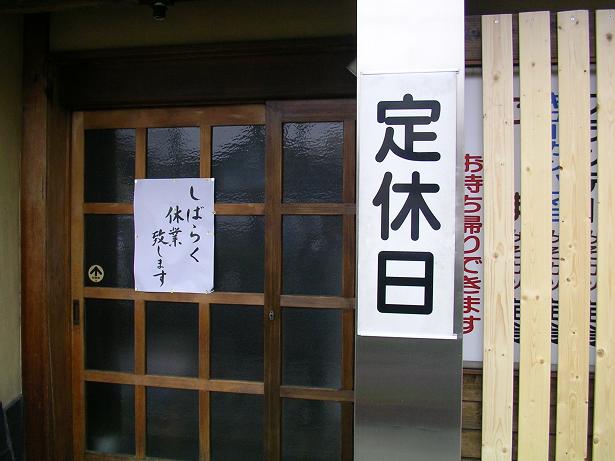 しばらく
休業
致します
定休日
お持ち帰りできます